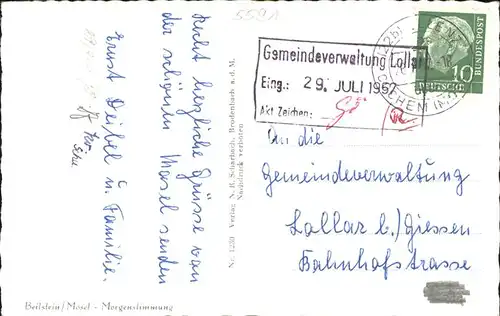 5591
Recht herzliche Grüsse von
der schönen Mosel senden
Ernst Deibel u. Familie.
Nr. 1220 Verlag N. R. Scharbach, Brodenbach a. d. M.
Nachdruck verboten
Beilstein/Mosel - Morgenstimmung
Gemeindeverwaltung Lollar
Eing.: 29. JULI 1957
Akt Zeichen:
COCHEM
10
DEUTSCHE
BUNDESPOST
An die
Gemeindeverwaltung
Lollar b/ Giessen
Bahnhofstrasse